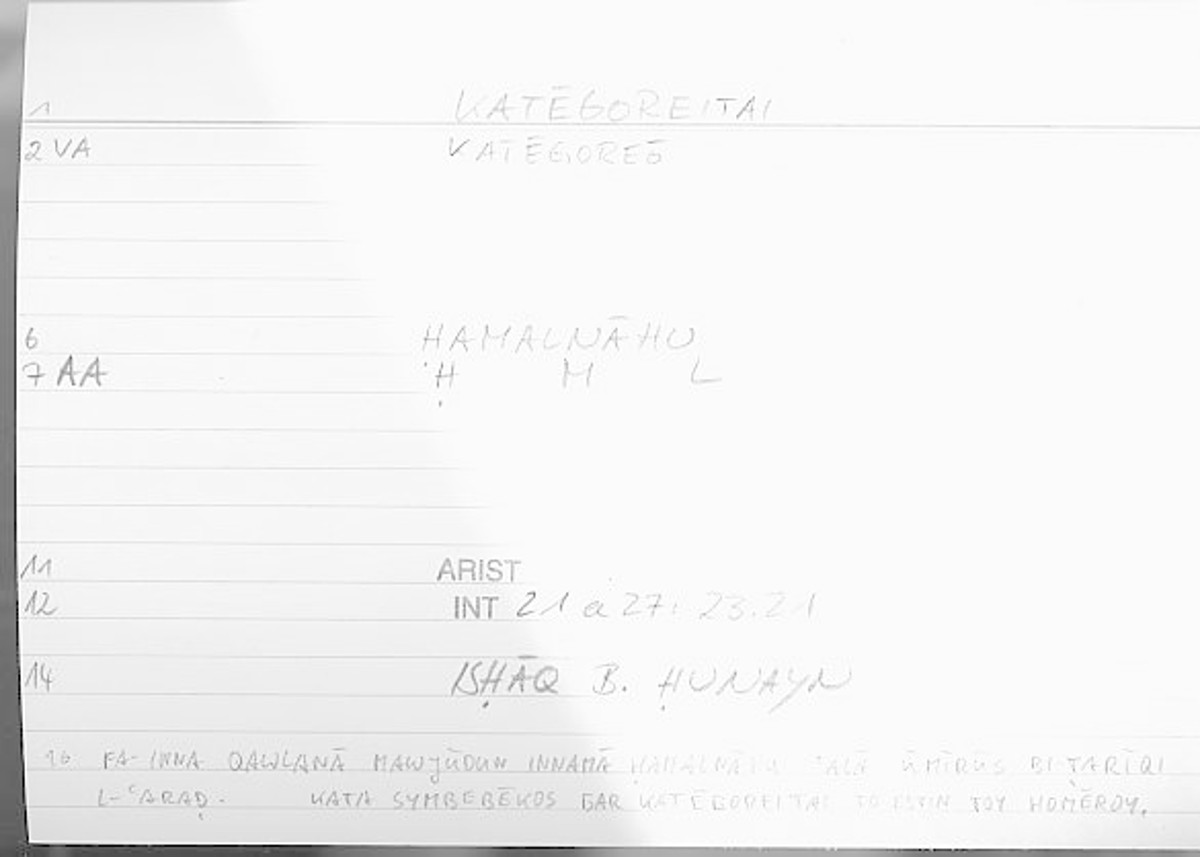 1 KATĒGOREITAI
2 VA KATĒGOREŌ
6 HAMALNĀHU
7 AA Ḥ M L
11 ARIST
12 INT 21 a 27: 23.21
14 ISḤĀQ B. ḤUNAYN
16 FA-INNA QAWLANĀ MAWJŪDUN INNAMĀ HAMALNĀHU ʿALĀ ŪMĪRŪS BI-ṬARĪQI
L-ʿARAḌ. KATA SYMBEBĒKOS GAR KATĒGOREITAI TO ESTIN TOY HOMĒROY.